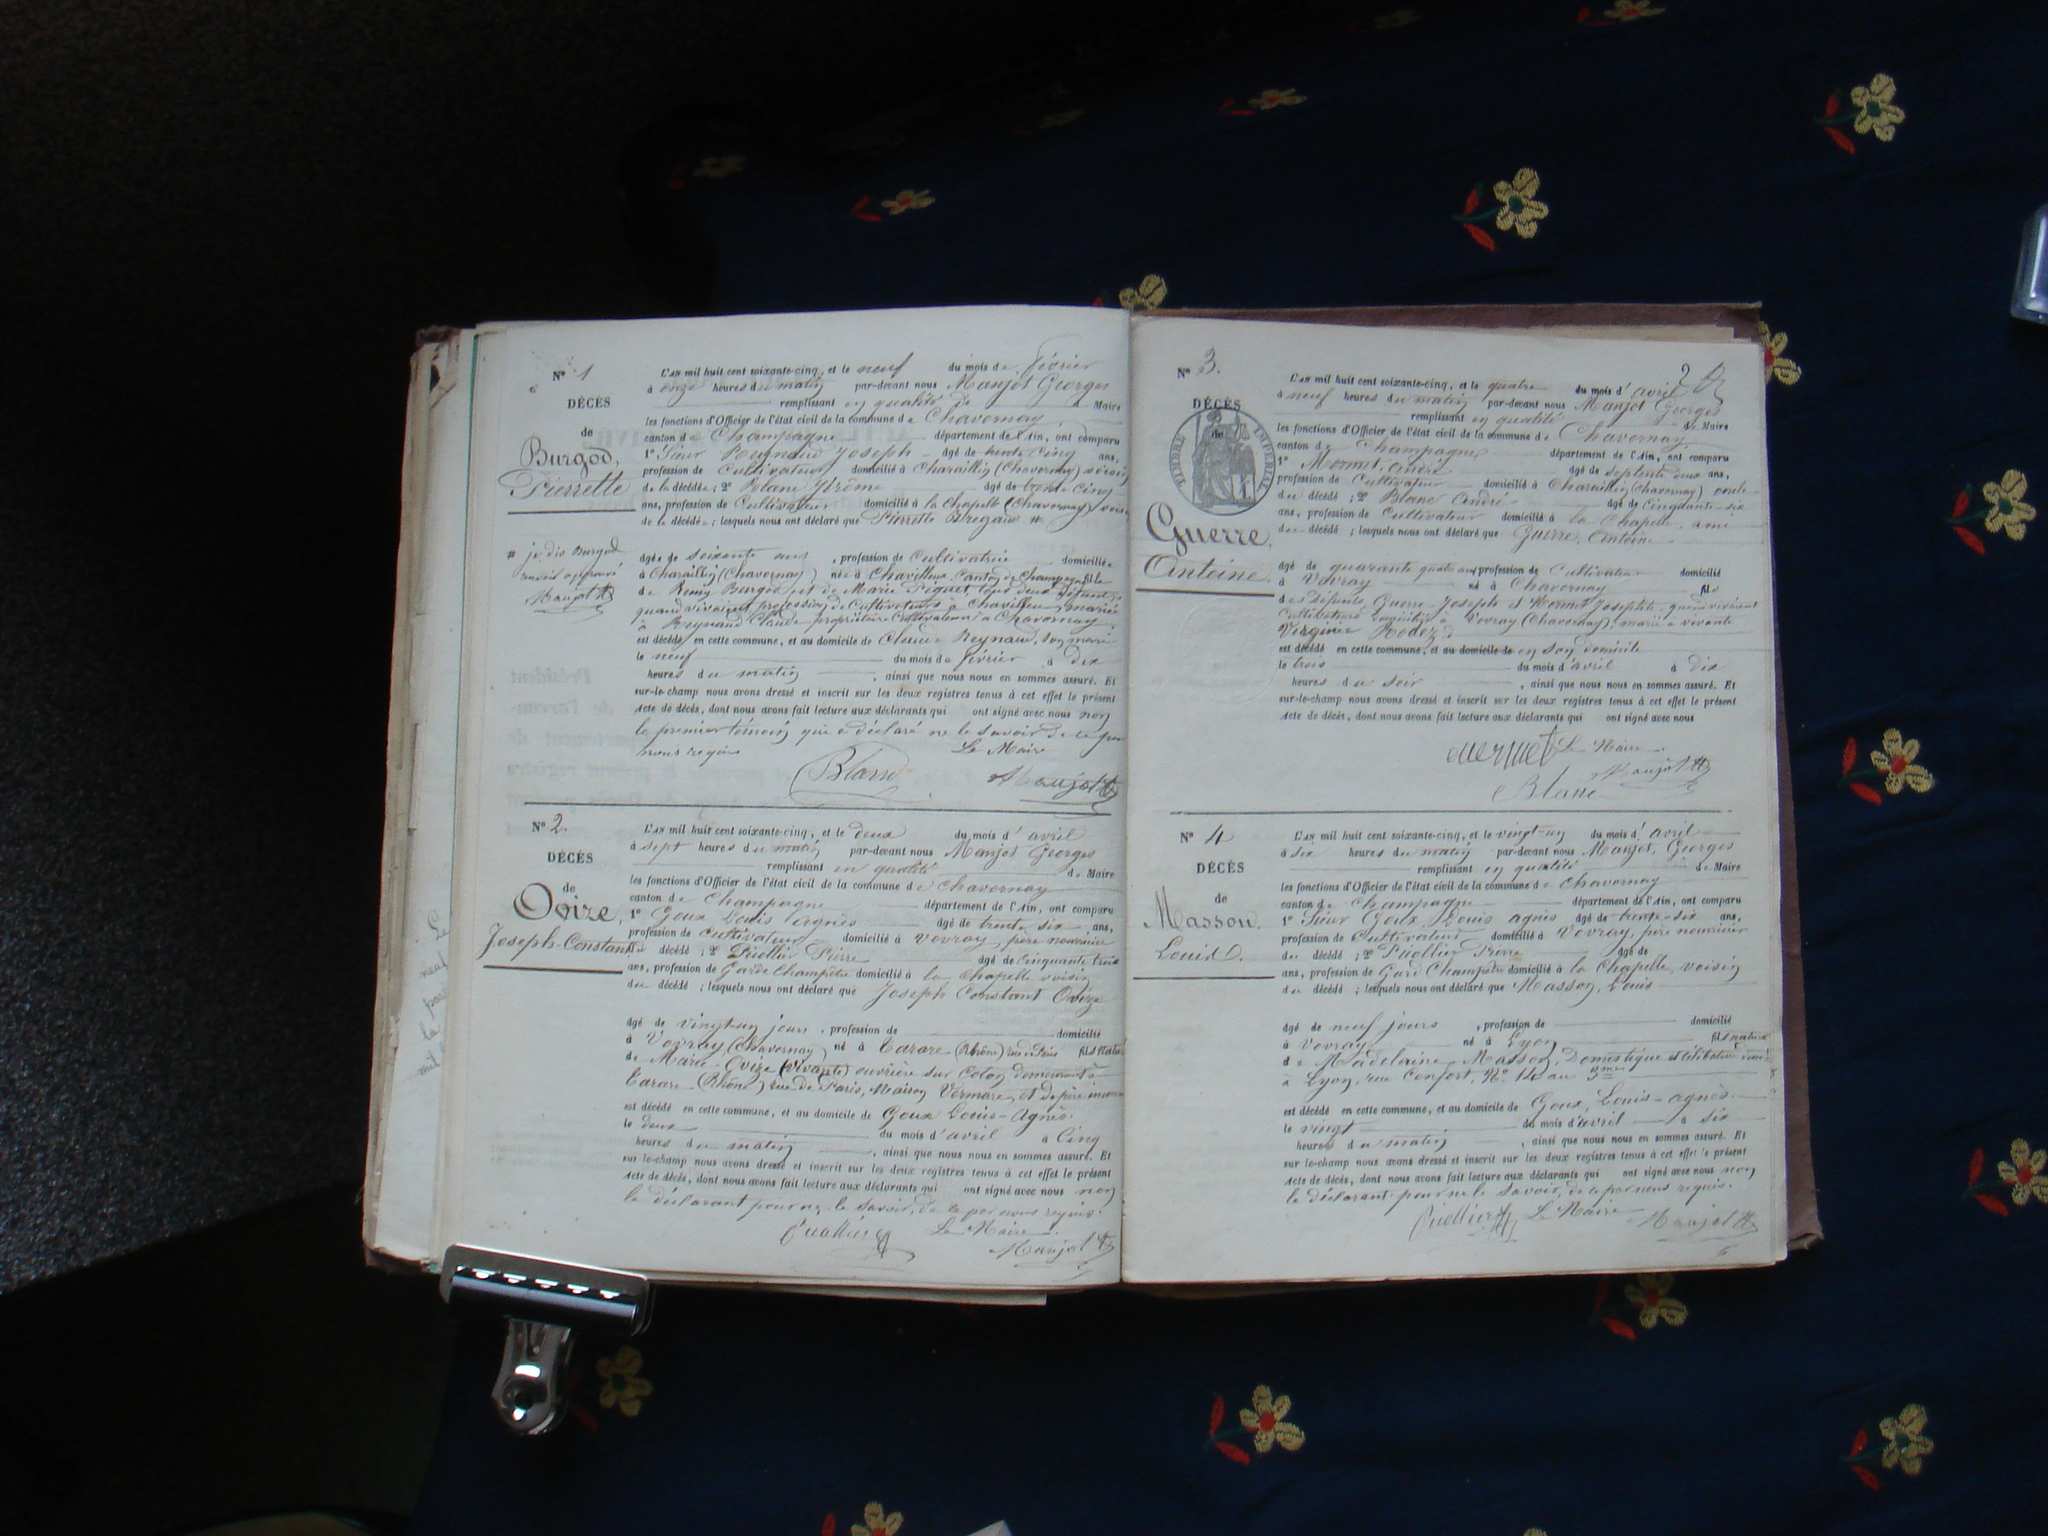 N° 1
DÉCÈS
de
Burgod,
Pierrette
# je dis Burgod
renvoi approuvé
Maujot
L'AN mil huit cent soixante-cinq, et le neuf du mois de février
à onze heures du matin par-devant nous Maujot Georges
remplissant en qualité de Maire
les fonctions d'Officier de l'état civil de la commune de Chavornay
canton de Champagne département de l'Ain, ont comparu
1° Sieur Reynaud Joseph âgé de trente cinq ans,
profession de Cultivateur domicilié à Charaillin (Chavornay)
de la décédée ; 2° Blanc Jérôme âgé de trente cinq
ans, profession de Cultivateur domicilié à la Chapelle (Chavornay)
de la décédée ; lesquels nous ont déclaré que Pierrette #
âgée de soixante ans, profession de Cultivatrice domiciliée
à Charaillin (Chavornay) née à Chavilleu, Canton de Champagne fille
de Remy Burgod et de Marie Piquet, tous deux défunts
quand vivaient profession de Cultivateurs à Chavilleu, mariée
à Reynaud Claude propriétaire Cultivateur à Chavornay
est décédée en cette commune, et au domicile de Claude Reynaud, son mari
le neuf du mois de février à dix
heures du matin, ainsi que nous nous en sommes assuré. Et
sur-le-champ nous avons dressé et inscrit sur les deux registres tenus à cet effet le présent
acte de décès, dont nous avons fait lecture aux déclarants qui ont signé avec nous non
le premier témoin qui a déclaré ne le savoir de ce par
nous requis Le Maire
Blanc Maujot
N° 2.
DÉCÈS
de
Ovize,
Joseph-Constant
L'AN mil huit cent soixante-cinq, et le deux du mois d'avril
à sept heures du matin par-devant nous Maujot Georges
remplissant en qualité de Maire
les fonctions d'Officier de l'état civil de la commune de Chavornay
canton de Champagne département de l'Ain, ont comparu
1° Goux Louis Agnès âgé de trente six ans,
profession de cultivateur domicilié à Vovray, père nourricier
du décédé ; 2° Puollier Pierre âgé de cinquante trois
ans, profession de Garde Champêtre domicilié à la Chapelle voisin
du décédé ; lesquels nous ont déclaré que Joseph Constant Ovize
âgé de vingt-un jours, profession de domicilié
à Vovray (Chavornay) né à Tarare (Rhône) fils
de Marie Ovize (vivante) ouvrière sur coton demeurant à
Tarare (Rhône) rue de Paris, Maison Vermare, et de père inconnu
est décédé en cette commune, et au domicile de Goux Louis-Agnès.
le deux du mois d'avril à Cinq
heures du matin, ainsi que nous nous en sommes assuré. Et
sur-le-champ nous avons dressé et inscrit sur les deux registres tenus à cet effet le présent
acte de décès, dont nous avons fait lecture aux déclarants qui ont signé avec nous non
le déclarant pour ne le savoir, de ce par nous requis.
Le Maire
Maujot
N° 3.
2
DÉCÈS
de
TIMBRE IMPÉRIAL
Guerre,
Antoine
L'AN mil huit cent soixante-cinq, et le quatre du mois d'avril
à neuf heures du matin par-devant nous Maujot Georges
remplissant en qualité de Maire
les fonctions d'Officier de l'état civil de la commune de Chavornay
canton de Champagne département de l'Ain, ont comparu
1° Mermet, André âgé de septante deux ans,
profession de Cultivateur domicilié à Charaillin (Chavornay) oncle
du décédé ; 2° Blanc André âgé de Cinquante-six
ans, profession de Cultivateur domicilié à la Chapelle, ami
du décédé ; lesquels nous ont déclaré que Guerre, Antoine
âgé de quarante quatre ans profession de Cultivateur domicilié
à Vovray né à Chavornay fils
des défunts, Guerre Joseph et Mermet Josephte quand vivaient
cultivateurs domiciliés à Vovray (Chavornay), marié à vivante
est décédé en cette commune, et au domicile de en son domicile
le trois du mois d'avril à dix
heures du soir, ainsi que nous nous en sommes assuré. Et
sur-le-champ nous avons dressé et inscrit sur les deux registres tenus à cet effet le présent
acte de décès, dont nous avons fait lecture aux déclarants qui ont signé avec nous
Mermet Le Maire
Maujot
Blanc
N° 4
DÉCÈS
de
Masson
Louis
L'AN mil huit cent soixante-cinq, et le vingt-un du mois d'avril
à six heures du matin par-devant nous Maujot, Georges
remplissant en qualité de Maire
les fonctions d'Officier de l'état civil de la commune de Chavornay
canton de Champagne département de l'Ain, ont comparu
1° Sieur Goux, Louis agnès âgé de trente-six ans,
profession de Cultivateur domicilié à Vovray, père nourricier
du décédé ; 2° Puollier Pierre âgé de
ans, profession de Gard Champêtre domicilié à la Chapelle, voisin
du décédé ; lesquels nous ont déclaré que Masson, Louis
âgé de neuf jours, profession de domicilié
à Vovray né à Lyon fils naturel
de Madelaine Masson, Domestique
à Lyon, rue Confort, N° 14 au 3me
est décédé en cette commune, et au domicile de Goux, Louis-agnès.
le vingt du mois d'avril à six
heures du matin, ainsi que nous nous en sommes assuré. Et
sur-le-champ nous avons dressé et inscrit sur les deux registres tenus à cet effet le présent
acte de décès, dont nous avons fait lecture aux déclarants qui ont signé avec nous non
le déclarant pour ne le savoir, de ce par nous requis.
Le Maire
Maujot